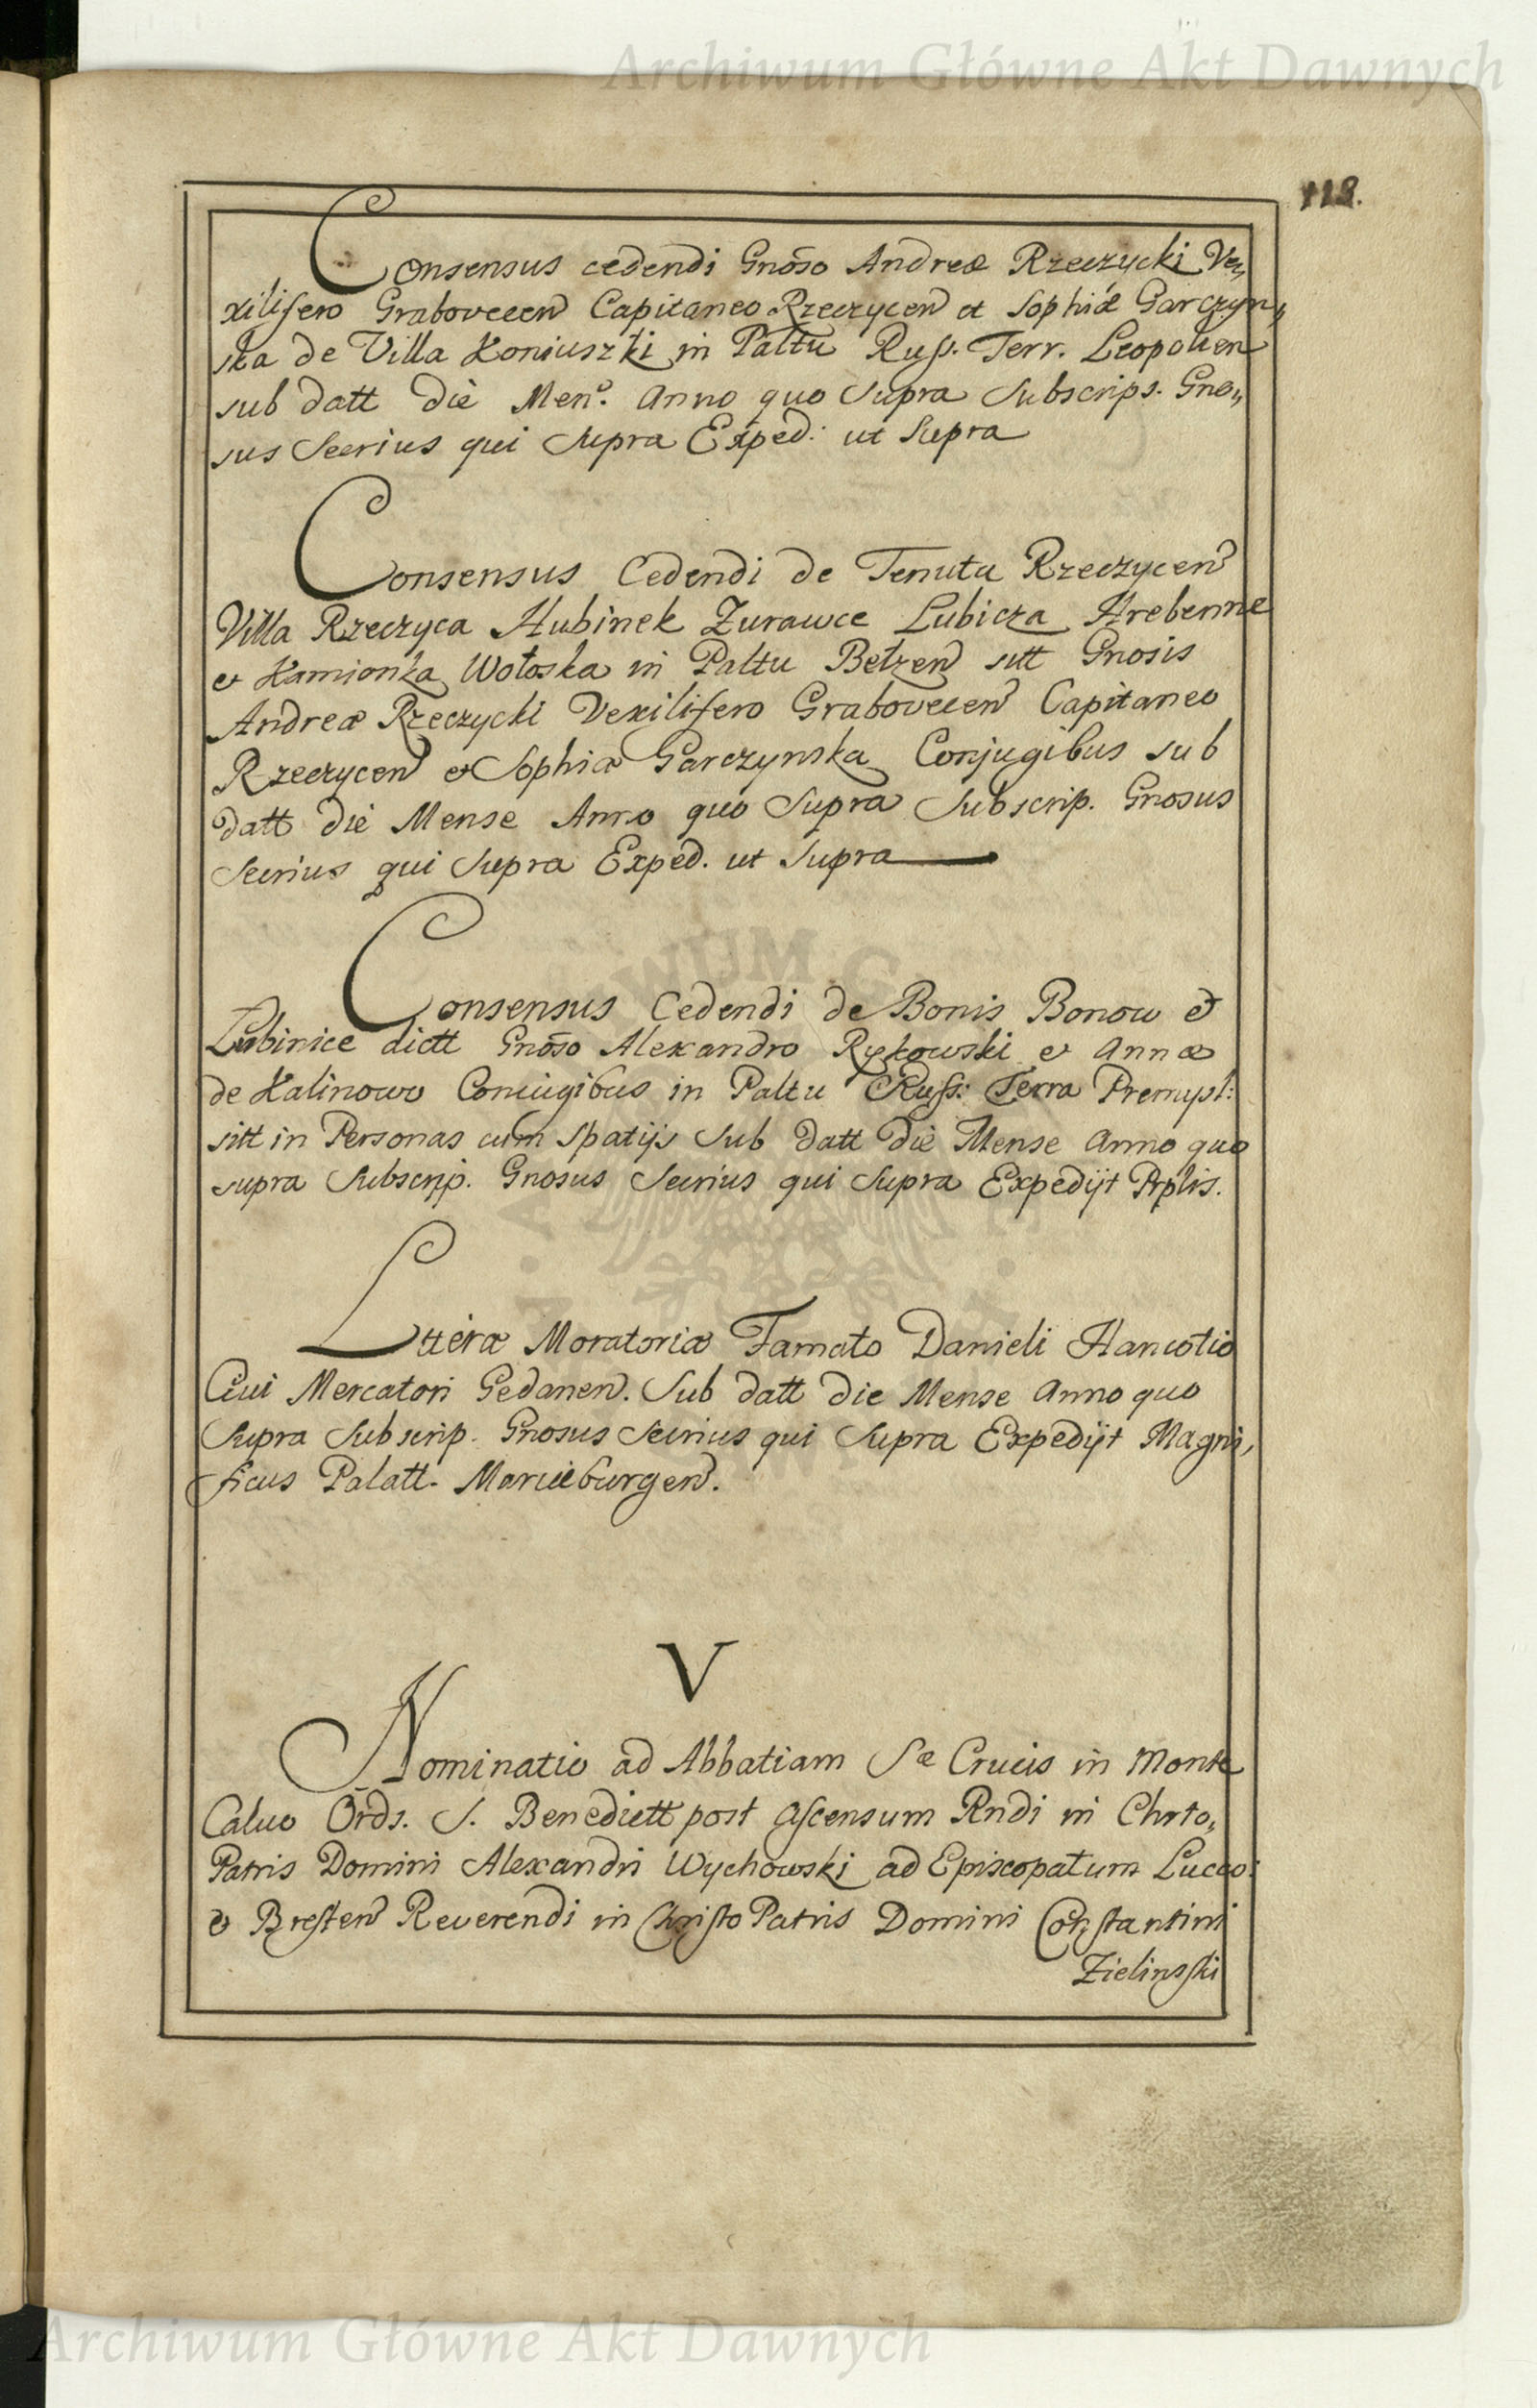 Archiwum Główne Akt Dawnych
118.
Consensus cedendi Gnoso Andreæ Rzeczycki Ve„
xilifero Grabovecen Capitaneo Rzeczycen et Sophiæ Garczyn„
ska de Villa Koniuszki in Palttu Russ. Terr. Leopolien
sub datt die Men. Anno quo Supra Subscrips. Gno„
sus Secrius qui Supra Exped: ut Supra
Consensus Cedendi de Tenuta Rzeczycen
Villa Rzeczyca Hubinek Zurawce Lubicza Hrebenne
et Kamionka Wołoska in Palttu Bełzen sitt Gnosis
Andreæ Rzeczycki Vexilifero Grabovecen Capitaneo
Rzeczycen et Sophiæ Garczynska Conjugibus sub
datt die Mense Anno quo Supra Subscrip. Gnosus
Secrius qui Supra Exped. ut Supra
Consensus Cedendi de Bonis Bonow et
Lubinice dictt Gnoso Alexandro Rykowski et Annæ
de Kalinowo Coniugibus in Palttu Russ: Terra Premysl:
sitt in Personas cum spatijs sub datt die Mense Anno quo
supra Subscrip. Gnosus Secrius qui Supra Expedijt Prplis.
Litteræ Moratoriæ Famato Danieli
Civi Mercatori Gedanen. Sub datt die Mense Anno quo
Supra Subscrip. Gnosus Secrius qui Supra Expedijt Magni,
ficus Palatt. Marieburgen.
V
Nominatio ad Abbatiam Sæ Crucis in Monte
Calvo Ords. S. Benedictt post Ascensum Rndi in Chrto,
Patris Domini Alexandri Wychowski ad Episcopatum Luceo:
et Bresten Reverendi in Christo Patris Domini Constantini
Zielinski
Archiwum Główne Akt Dawnych